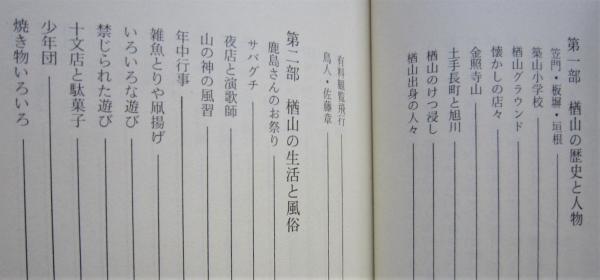 第一部 楢山の歴史と人物
笠門・板塀・垣根
築山小学校
楢山グラウンド
懐かしの店々
金照寺山
土手長町と旭川
楢山のけつ浸し
楢山出身の人々
有料観覧飛行
鳥人・佐藤章
第二部 楢山の生活と風俗
鹿島さんのお祭り
サバグチ
夜店と演歌師
山の神の風習
年中行事
雑魚とりや凧揚げ
いろいろな遊び
禁じられた遊び
十文店と駄菓子
少年団
焼き物いろいろ